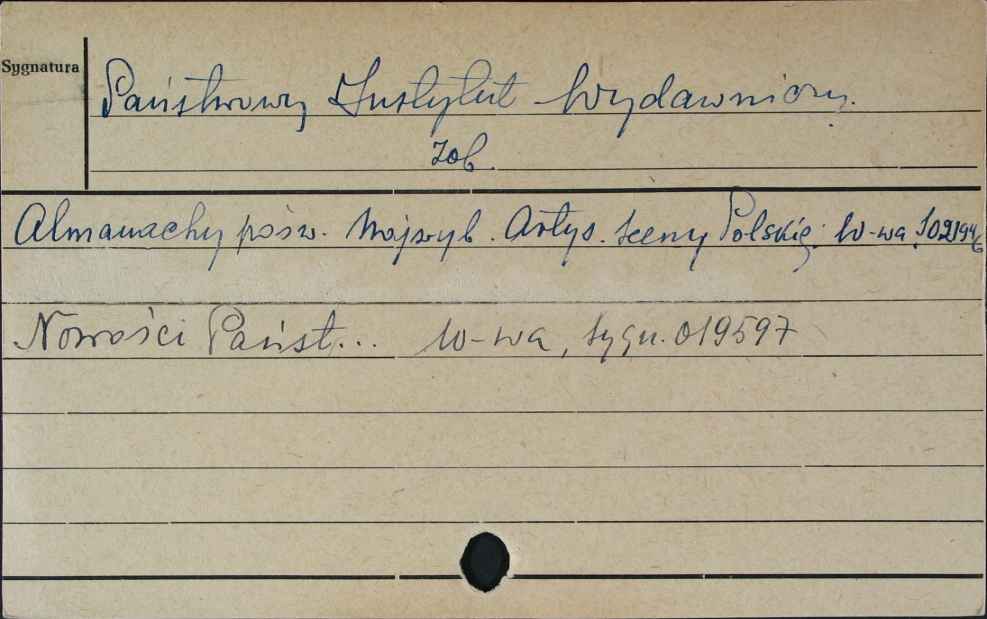 Sygnatura
Państwowy Instytut Wydawniczy.
zob.
Almanachy pośw. Najwyb. Artys. sceny Polskiej. W-wa
Nowości Państ... W-wa, sygn. 019597